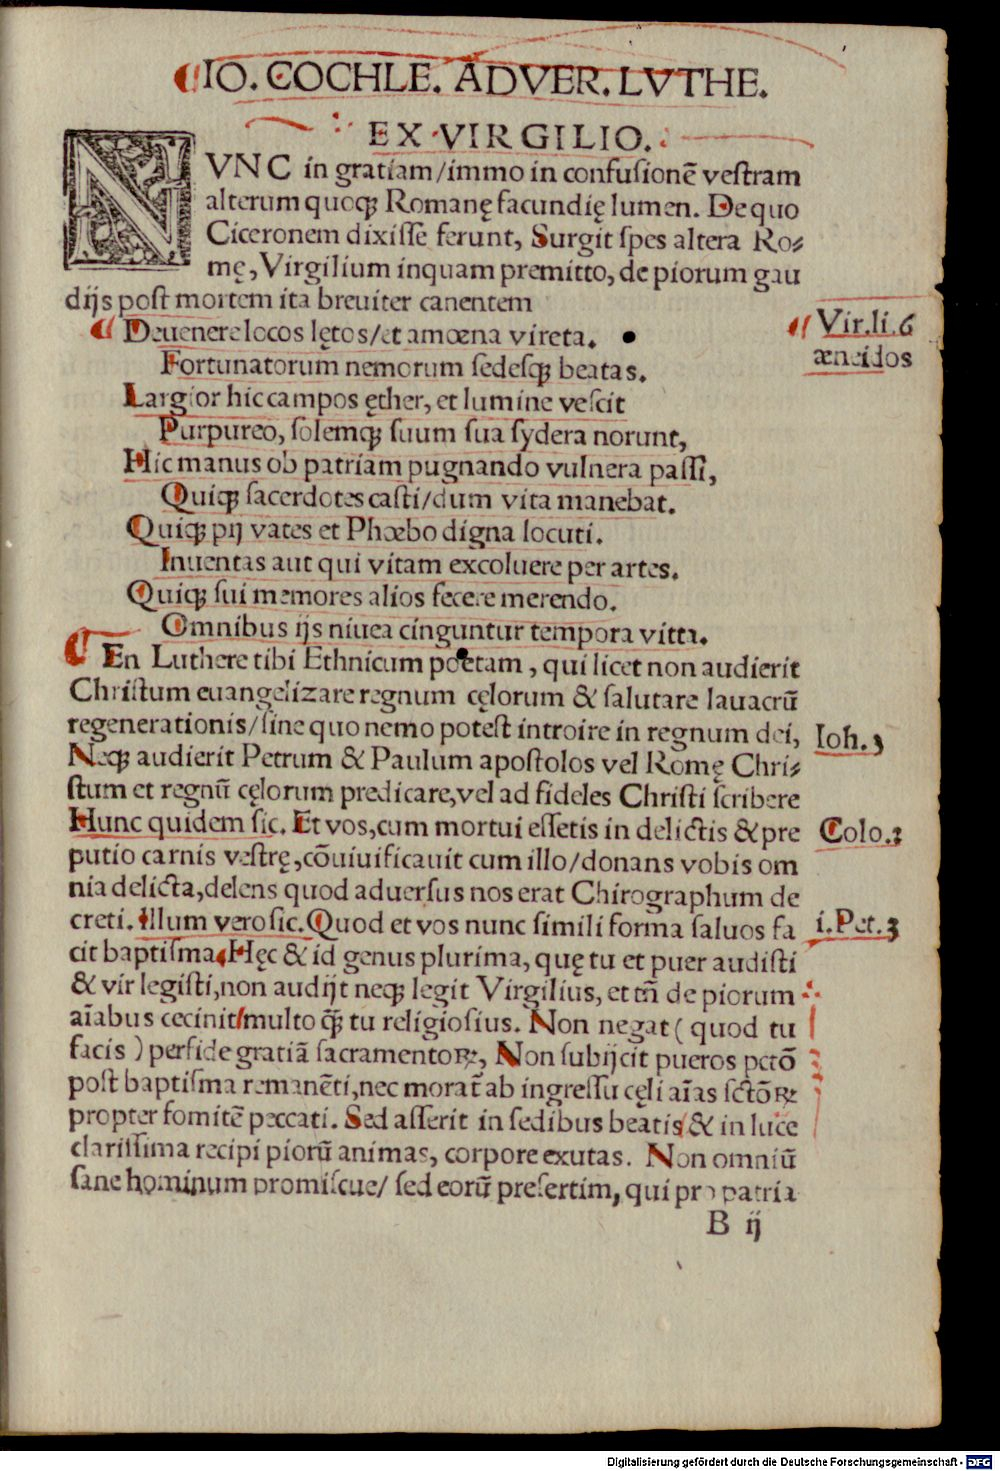 IO. COCHLE. ADVER. LVTHE.
EX VIRGILIO.
NVNC in gratiam/immo in confusionē vestram
alterum quoqꝫ Romanę facundię lumen. De quo
Ciceronem dixisse ferunt, Surgit spes altera Ro⸗
mę, Virgilium inquam premitto, de piorum gau
dijs post mortem ita breuiter canentem
Deuenere locos lętos/et amœna vireta.
Vir.li.6
æneidos
Fortunatorum nemorum sedesqꝫ beatas.
Largior hic campos ęther, et lumine vescit
Purpureo, solemqꝫ suum sua sydera norunt,
Hic manus ob patriam pugnando vulnera passi,
Quiqꝫ sacerdotes casti/dum vita manebat.
Quiqꝫ pij vates et Phœbo digna locuti.
Inuentas aut qui vitam excoluere per artes.
Quiqꝫ sui memores alios fecere merendo.
Omnibus ijs niuea cinguntur tempora vitta.
En Luthere tibi Ethnicum poetam, qui licet non audierit
Christum euangelizare regnum cęlorum & salutare lauacrū
regenerationis/sine quo nemo potest introire in regnum dei,
Ioh.3
Neqꝫ audierit Petrum & Paulum apostolos vel Romę Chri⸗
stum et regnū cęlorum predicare,vel ad fideles Christi scribere
Hunc quidem sic. Et vos,cum mortui essetis in delictis & pre
Colo.2
putio carnis vestrę,cōuiuificauit cum illo/donans vobis om
nia delicta,delens quod aduersus nos erat Chirographum de
creti. Illum vero sic. Quod et vos nunc simili forma saluos fa
i.Pet.3
cit baptisma Hęc & id genus plurima, quę tu et puer audisti
& vir legisti,non audijt neqꝫ legit Virgilius, et tñ de piorum
aīabus cecinit/multo q̄ꝫ tu religiosius. Non negat ( quod tu
facis ) perfide gratiā sacramentoꝝ, Non subijcit pueros pctō
post baptisma remanēti,nec morat̄ ab ingressu cęli aīas sctōꝝ
propter fomitē peccati. Sed asserit in sedibus beatis/& in luce
clarissima recipi piorū animas, corpore exutas. Non omniū
sane hominum promiscue/ sed eorū presertim, qui pro patria
B ij
Digitalisierung gefördert durch die Deutsche Forschungsgemeinschaft - DFG